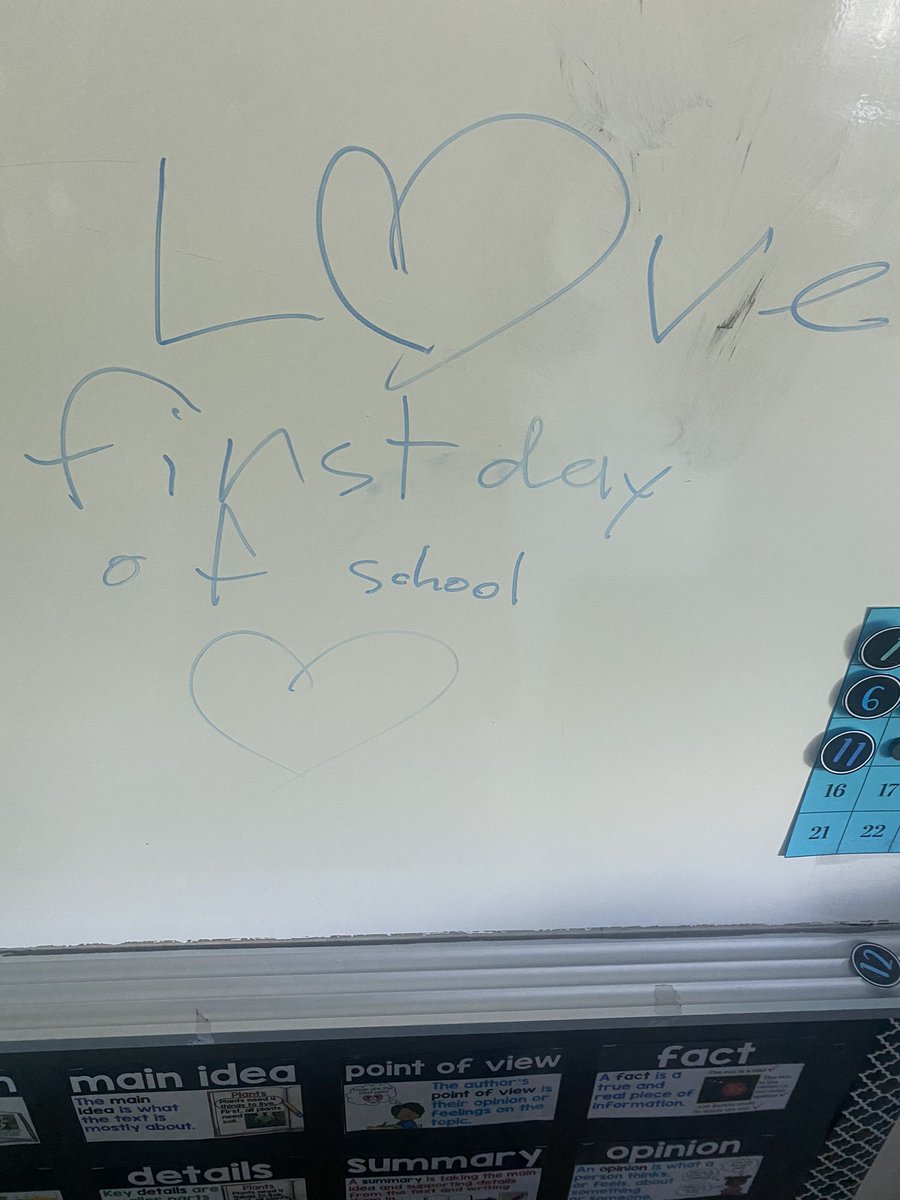 L♡ve
first day
of school
♡
6
11
16 17
21 22
12
main idea
The main
idea is what
the text is
mostly about.
Plants
point of view
The author's
point of view is
their opinion or
feelings on the
topic.
fact
A fact is a
true and
real piece of
information.
details
Key details are
Plants
summary
A summary is taking the main
idea and supporting details
from the text and writing
opinion
An opinion is what a
person thinks
or feels about
something